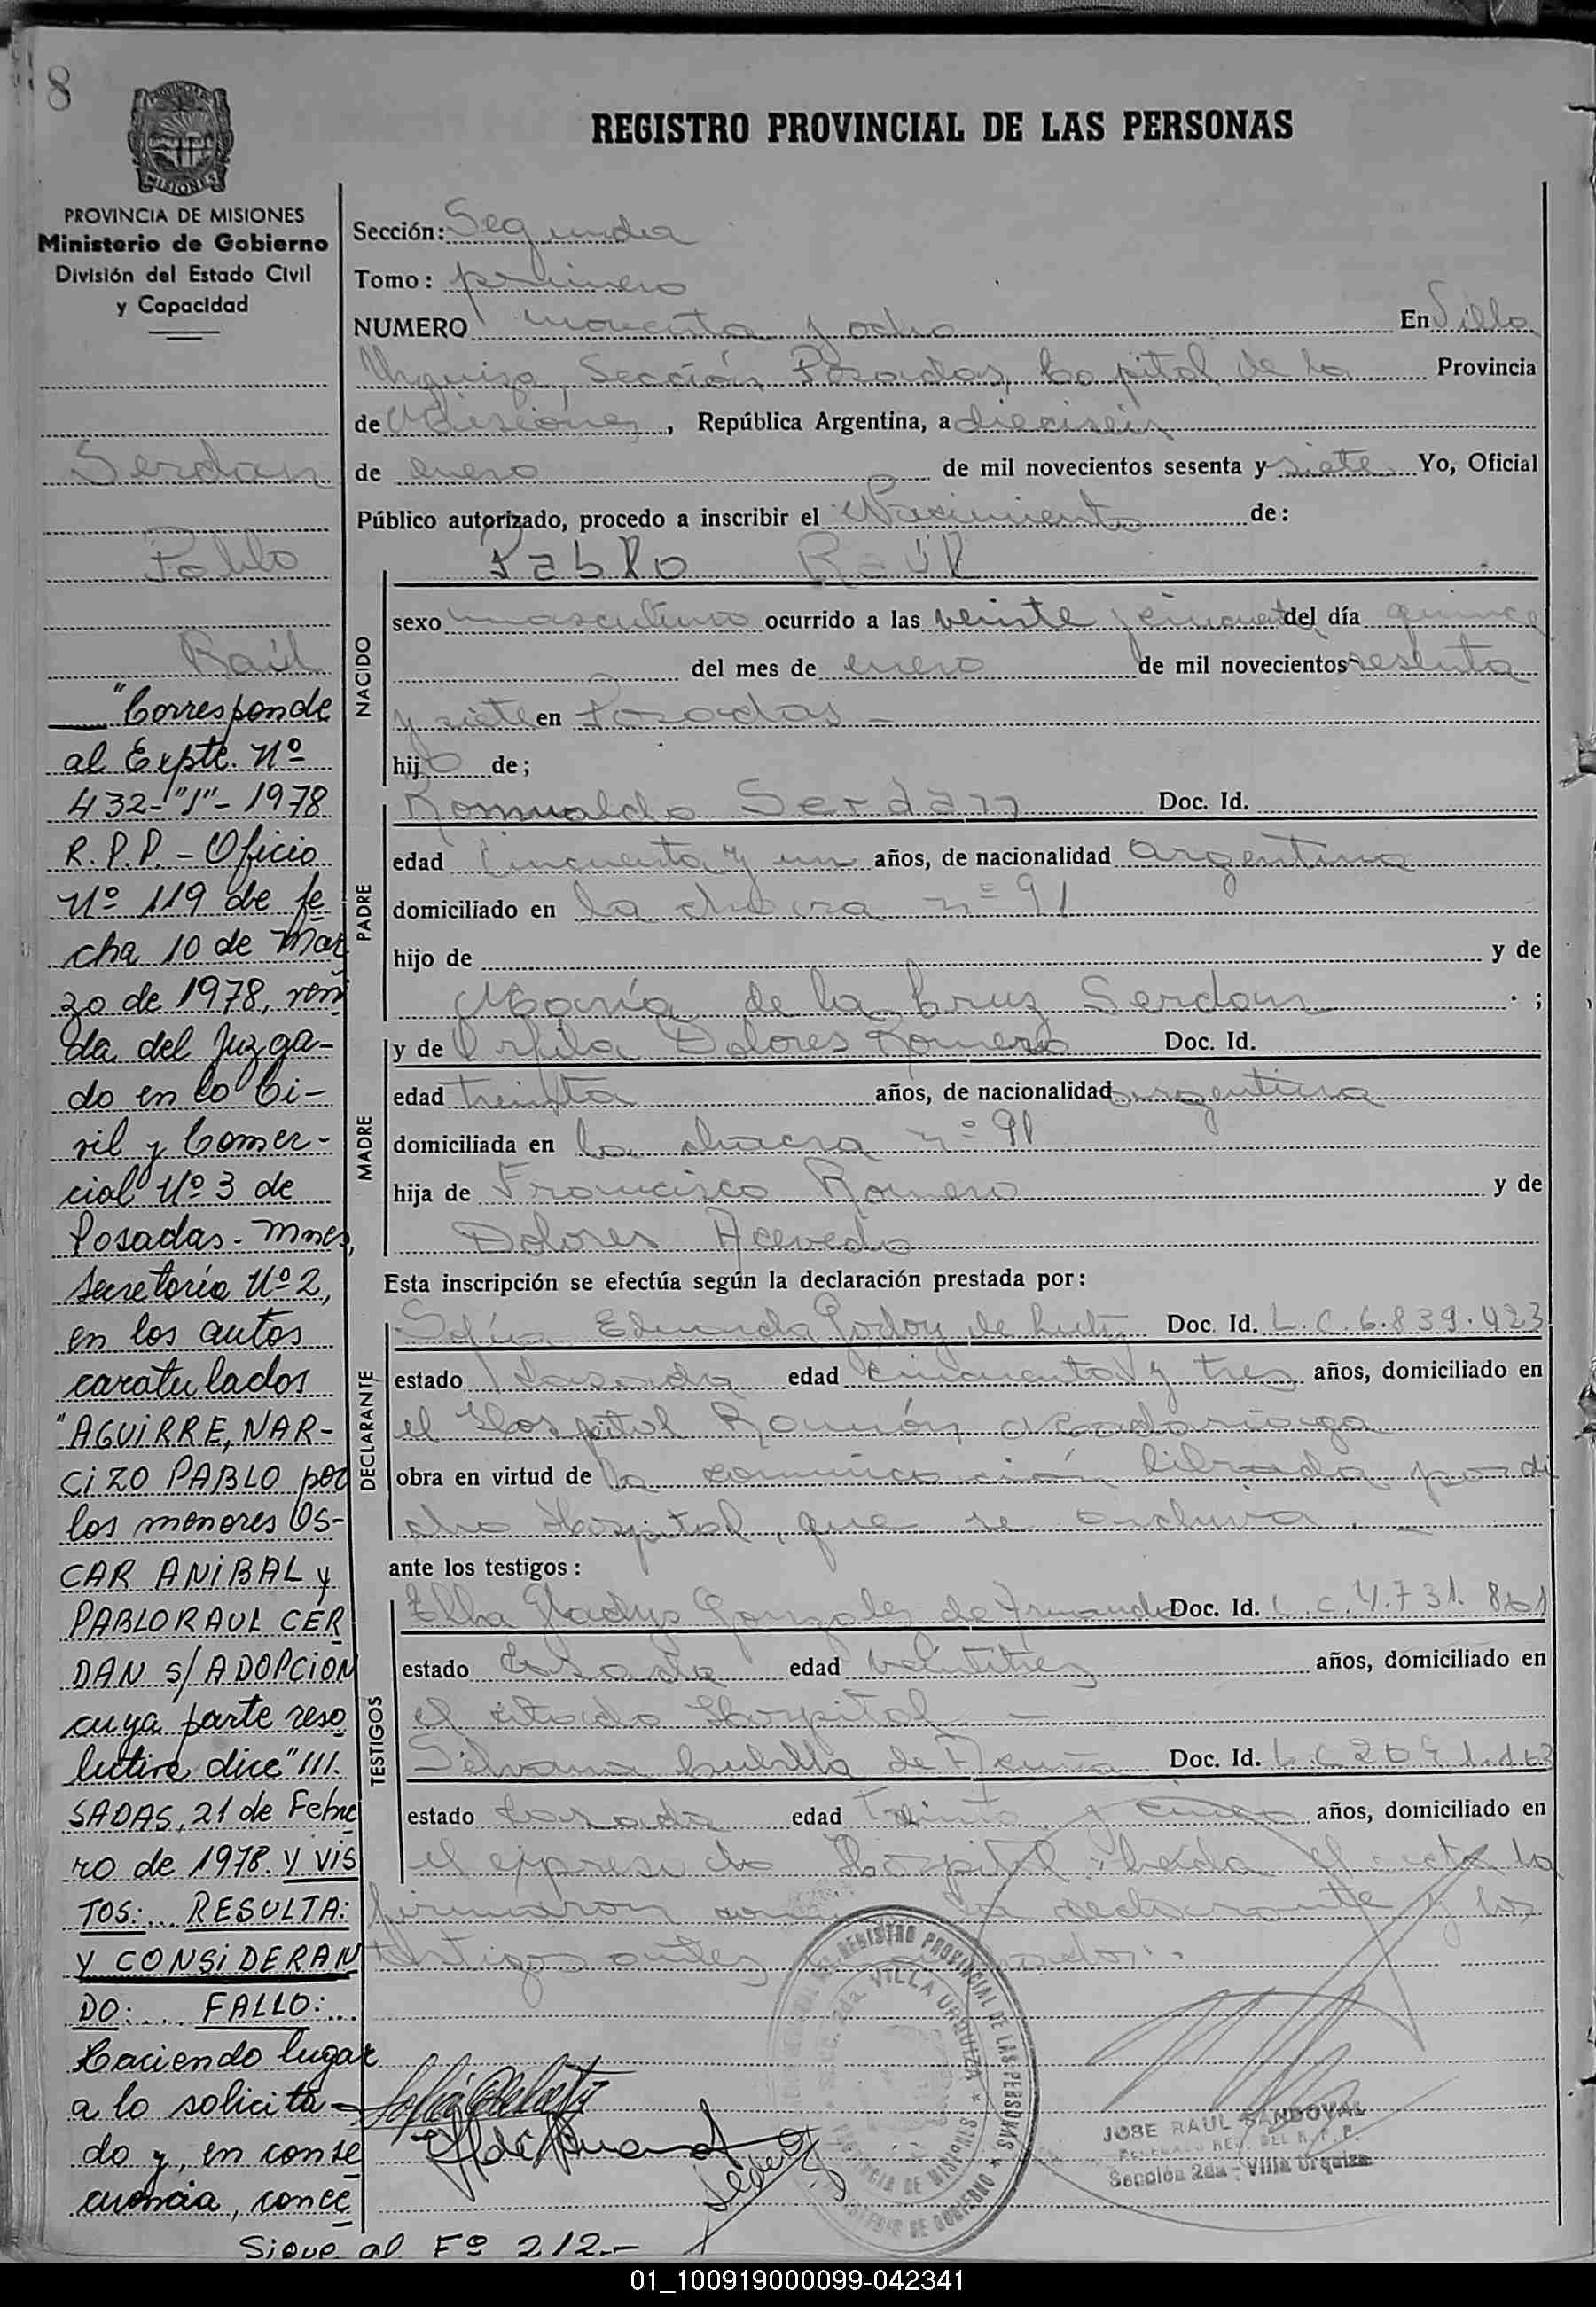 8
REGISTRO PROVINCIAL DE LAS PERSONAS
MISIONES
PROVINCIA DE MISIONES
Ministerio de Gobierno
División del Estado Civil
y Capacidad
Serdan
Pablo
Raúl
"Corresponde
al Expte. Nº
432-"J"-1978
R.P.P. - Oficio
Nº 119 de fe
cha 10 de Mar
zo de 1978, remi
da del Juzga-
do en lo Ci-
vil y Comer-
cial Nº 3 de
Posadas - Mnes,
Secretoría Nº 2,
en los autos
caratulados
"AGUIRRE, NAR-
CIZO PABLO por
los menores OS-
CAR ANIBAL y
PABLO RAUL CER
DAN S/ADOPCION
cuya parte reso
lutiva dice "///.
SADAS, 21 de Febre
ro de 1978. Y VIS
TOS:... RESULTA:
Y CONSIDERAN
DO:.... FALLO:...
Haciendo lugar
a lo solicita-
do y, en conse
cuencia, conce
Sigue al Fº 212.-
Sección: Segunda
Tomo: primero
NUMERO noventa y ocho En Villa
Urquiza, Sección Posadas, Capital de la Provincia
de Misiones, República Argentina, a dieciseis
de enero de mil novecientos sesenta y siete Yo, Oficial
Público autorizado, procedo a inscribir el Nacimiento de:
Pablo Raúl
NACIDO
sexo masculino ocurrido a las veinte y cincuenta del día quince
del mes de enero de mil novecientos sesenta
y siete en Posadas -
hijo de;
PADRE
Romualdo Serdan Doc. Id.
edad Cincuenta y un años, de nacionalidad argentina
domiciliado en la chacra nº 91
hijo de y de
María de la Cruz Serdan ;
MADRE
y de Orfila Dolores Romero Doc. Id.
edad treinta años, de nacionalidad argentina
domiciliada en la chacra nº 91
hija de Francisco Romero y de
Dolores Acevedo
Esta inscripción se efectúa según la declaración prestada por:
DECLARANTE
Sofía Edmunda Godoy de Doc. Id. L.C. 6.839.423
estado Casada edad Cincuenta y tres años, domiciliado en
el Hospital Ramón Madariaga
obra en virtud de la comunicación librada por di
cho Hospital, que se archiva. -
ante los testigos:
TESTIGOS
Elba Gladys Gonzalez de Doc. Id. L.C. 4.731.
estado Casada edad veintitres años, domiciliado en
el citado Hospital -
Silvana de Doc. Id. L.C.
estado Casada edad Treinta y cinco años, domiciliado en
el expresado Hospital. Leída el acta la
firmaron como la declarante y los
testigos antes
REGISTRO PROVINCIAL DE LAS PERSONAS
VILLA URQUIZA
PROVINCIA DE MISIONES
MINISTERIO DE GOBIERNO
JOSE RAUL SANDOVAL
Sección 2da - Villa Urquiza
01_100919000099-042341